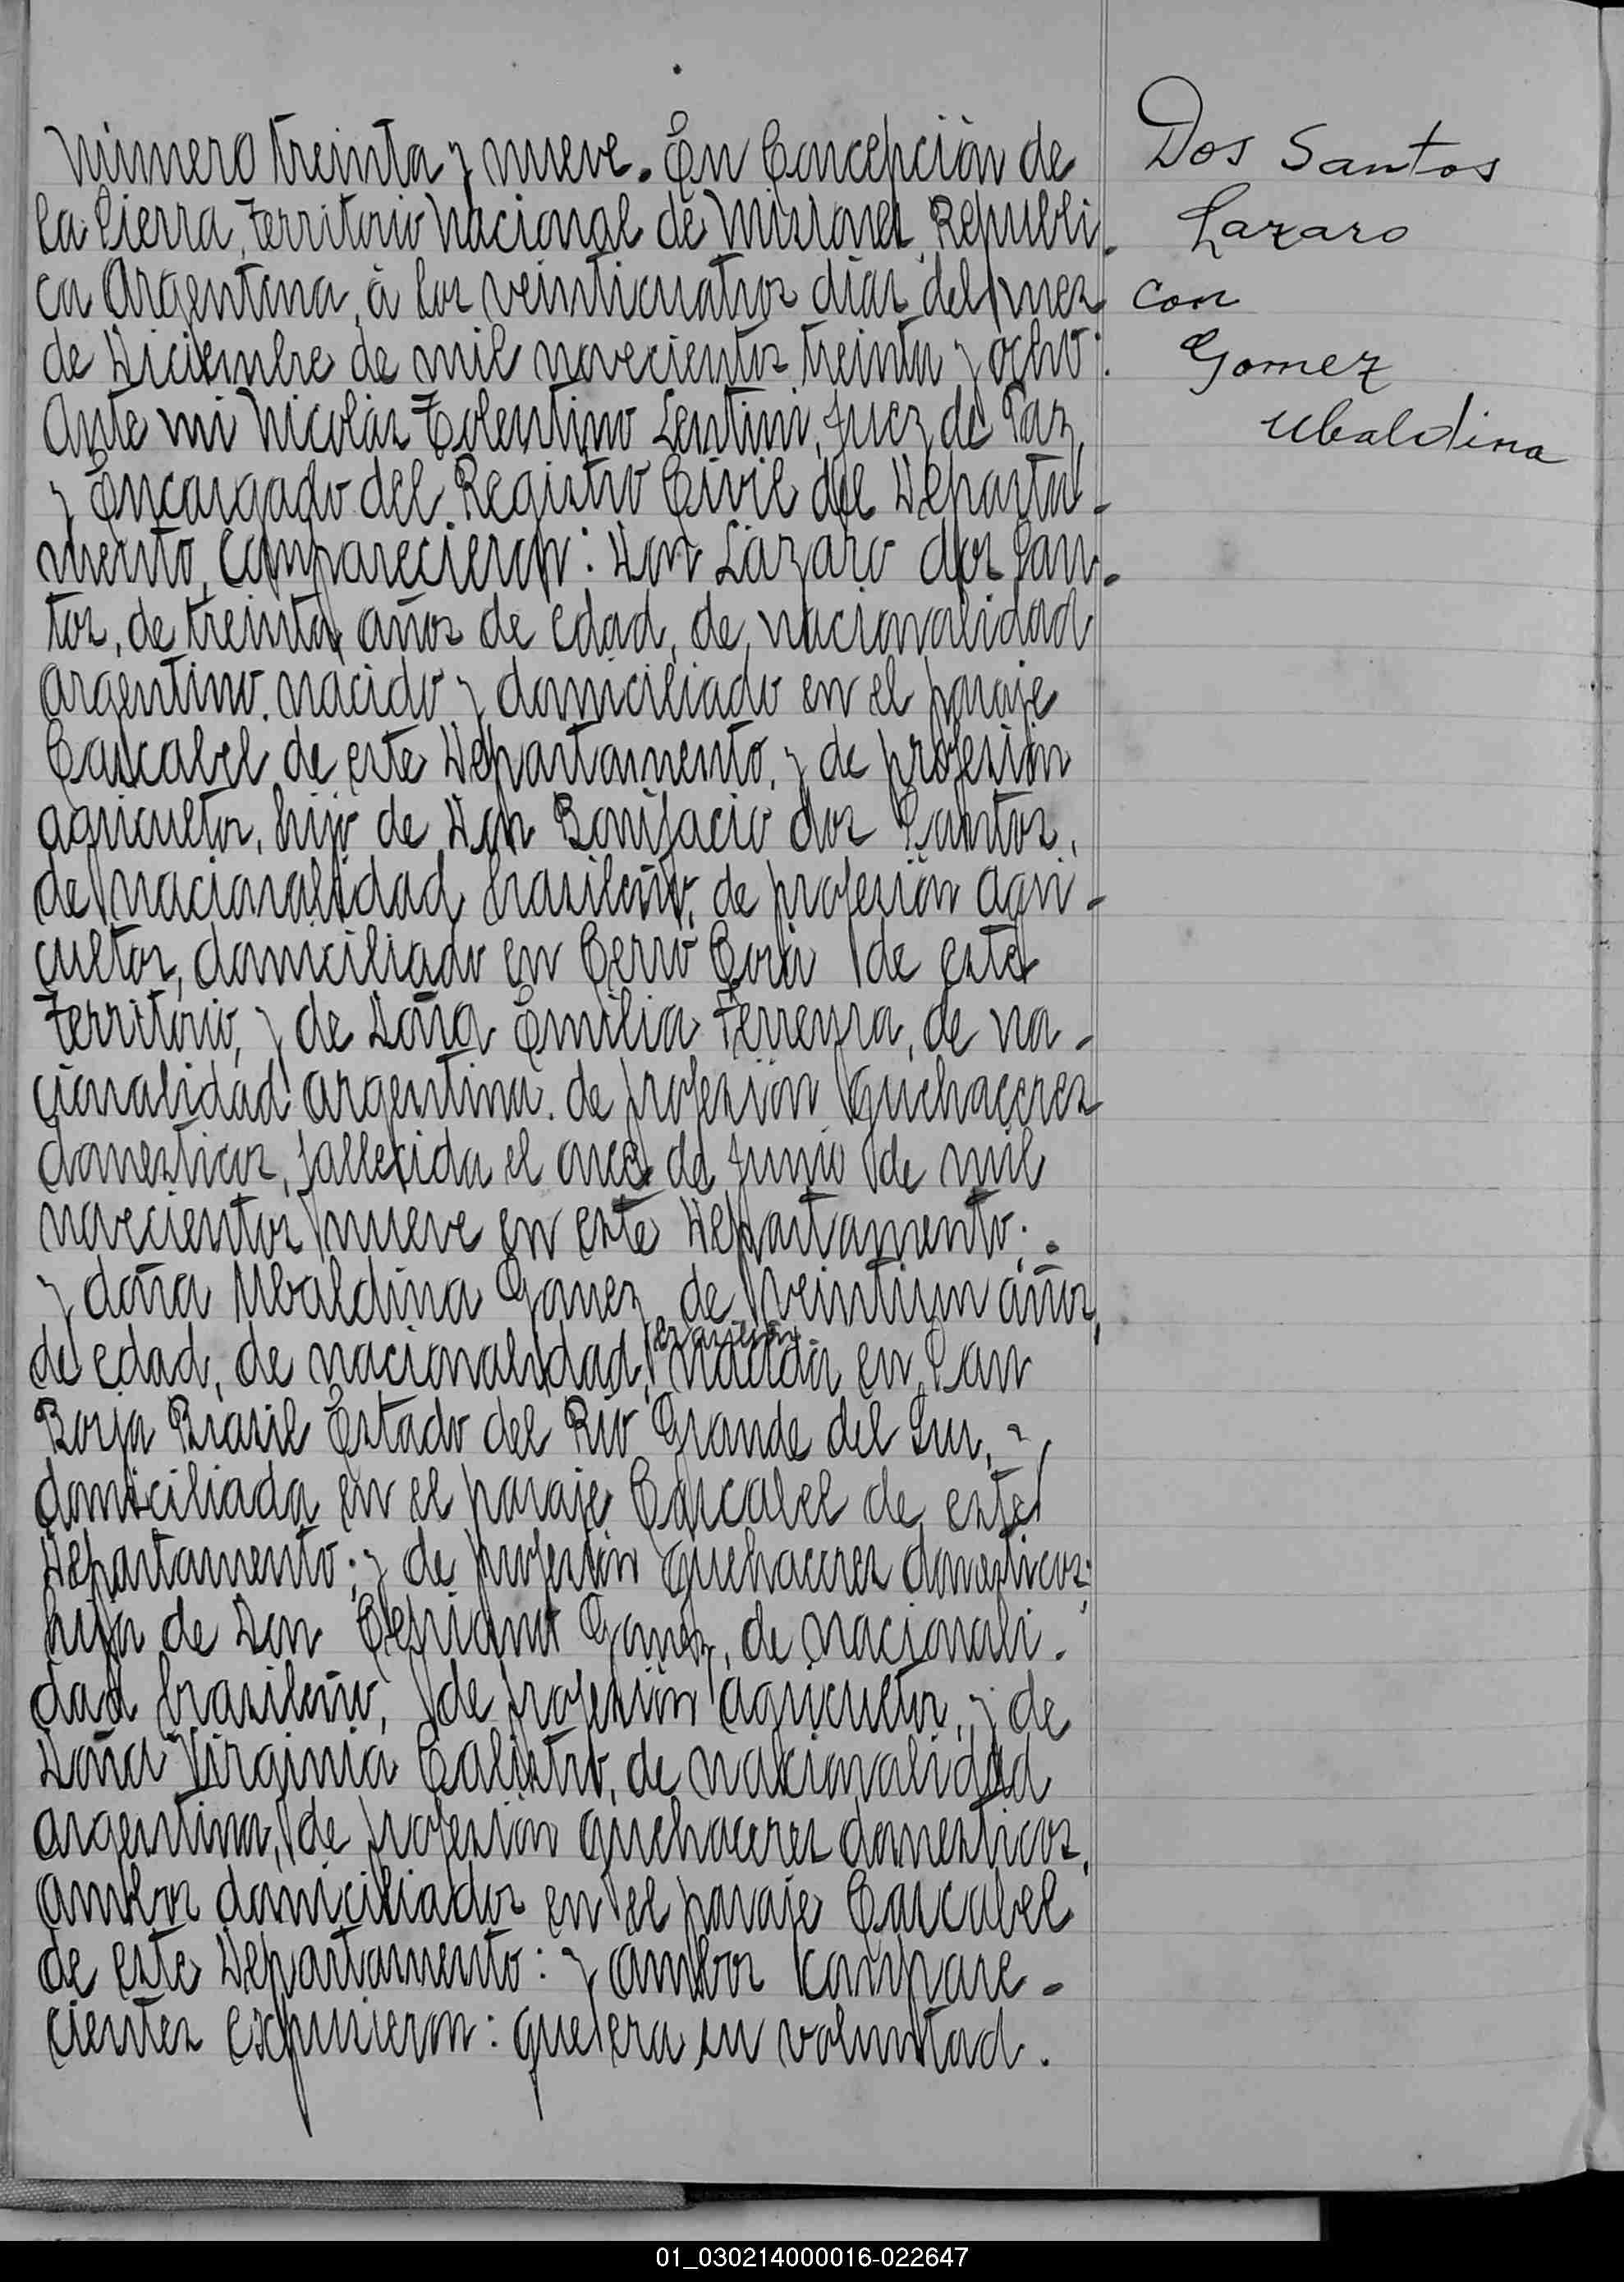 Número treinta y nueve. En Concepción de
la Sierra, Territorio Nacional de Misiones, Republi-
ca Argentina, á los veinticuatros dias del mes
de Diciembre de mil novecientos treinta y ocho:
Ante mi Nicolás Tolentino Lentini, Juez de Paz
y Encargado del Registro Civil del Departa-
mento, Comparecieron: Don Lázaro dos San-
tos, de treinta años de edad, de nacionalidad
argentino, nacido y domiciliado en el paraje
Cascabel de este Departamento, y de profesión
agricultor, hijo de Don Bonifacio dos Santos,
de nacionalidad brasileño, de profesión agri-
cultor, domiciliado en Cerro Corá de este
Territorio, y de Doña Emilia Ferreyra, de na-
cionalidad argentina, de profesión quehaceres
domesticos, fallecida el once de Junio de mil
novecientos nueve en este Departamento;
y doña Ubaldina Gomez, de veintiun años
de edad, de nacionalidad, brasilera nacida en San
Borja Brasil Estado del Rio Grande del Sur, y
domiciliada en el paraje Cascabel de este
Departamento; y de profesión quehaceres domesticos;
hija de Don Gomez, de nacionali-
dad brasileño, de profesión agricultor, y de
Doña Virginia Calistro, de nacionalidad
argentina, de profesión quehaceres domesticos,
ambos domiciliados en el paraje Cascabel
de este Departamento: y ambos compare-
cientes expusieron: que era su voluntad.
Dos Santos
Lazaro
con
Gomez
Ubaldina
01_030214000016-022647